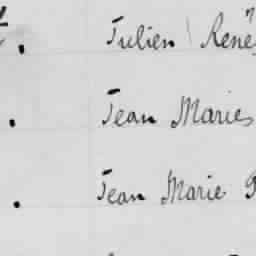 Julien René
Jean Marie
Jean Marie